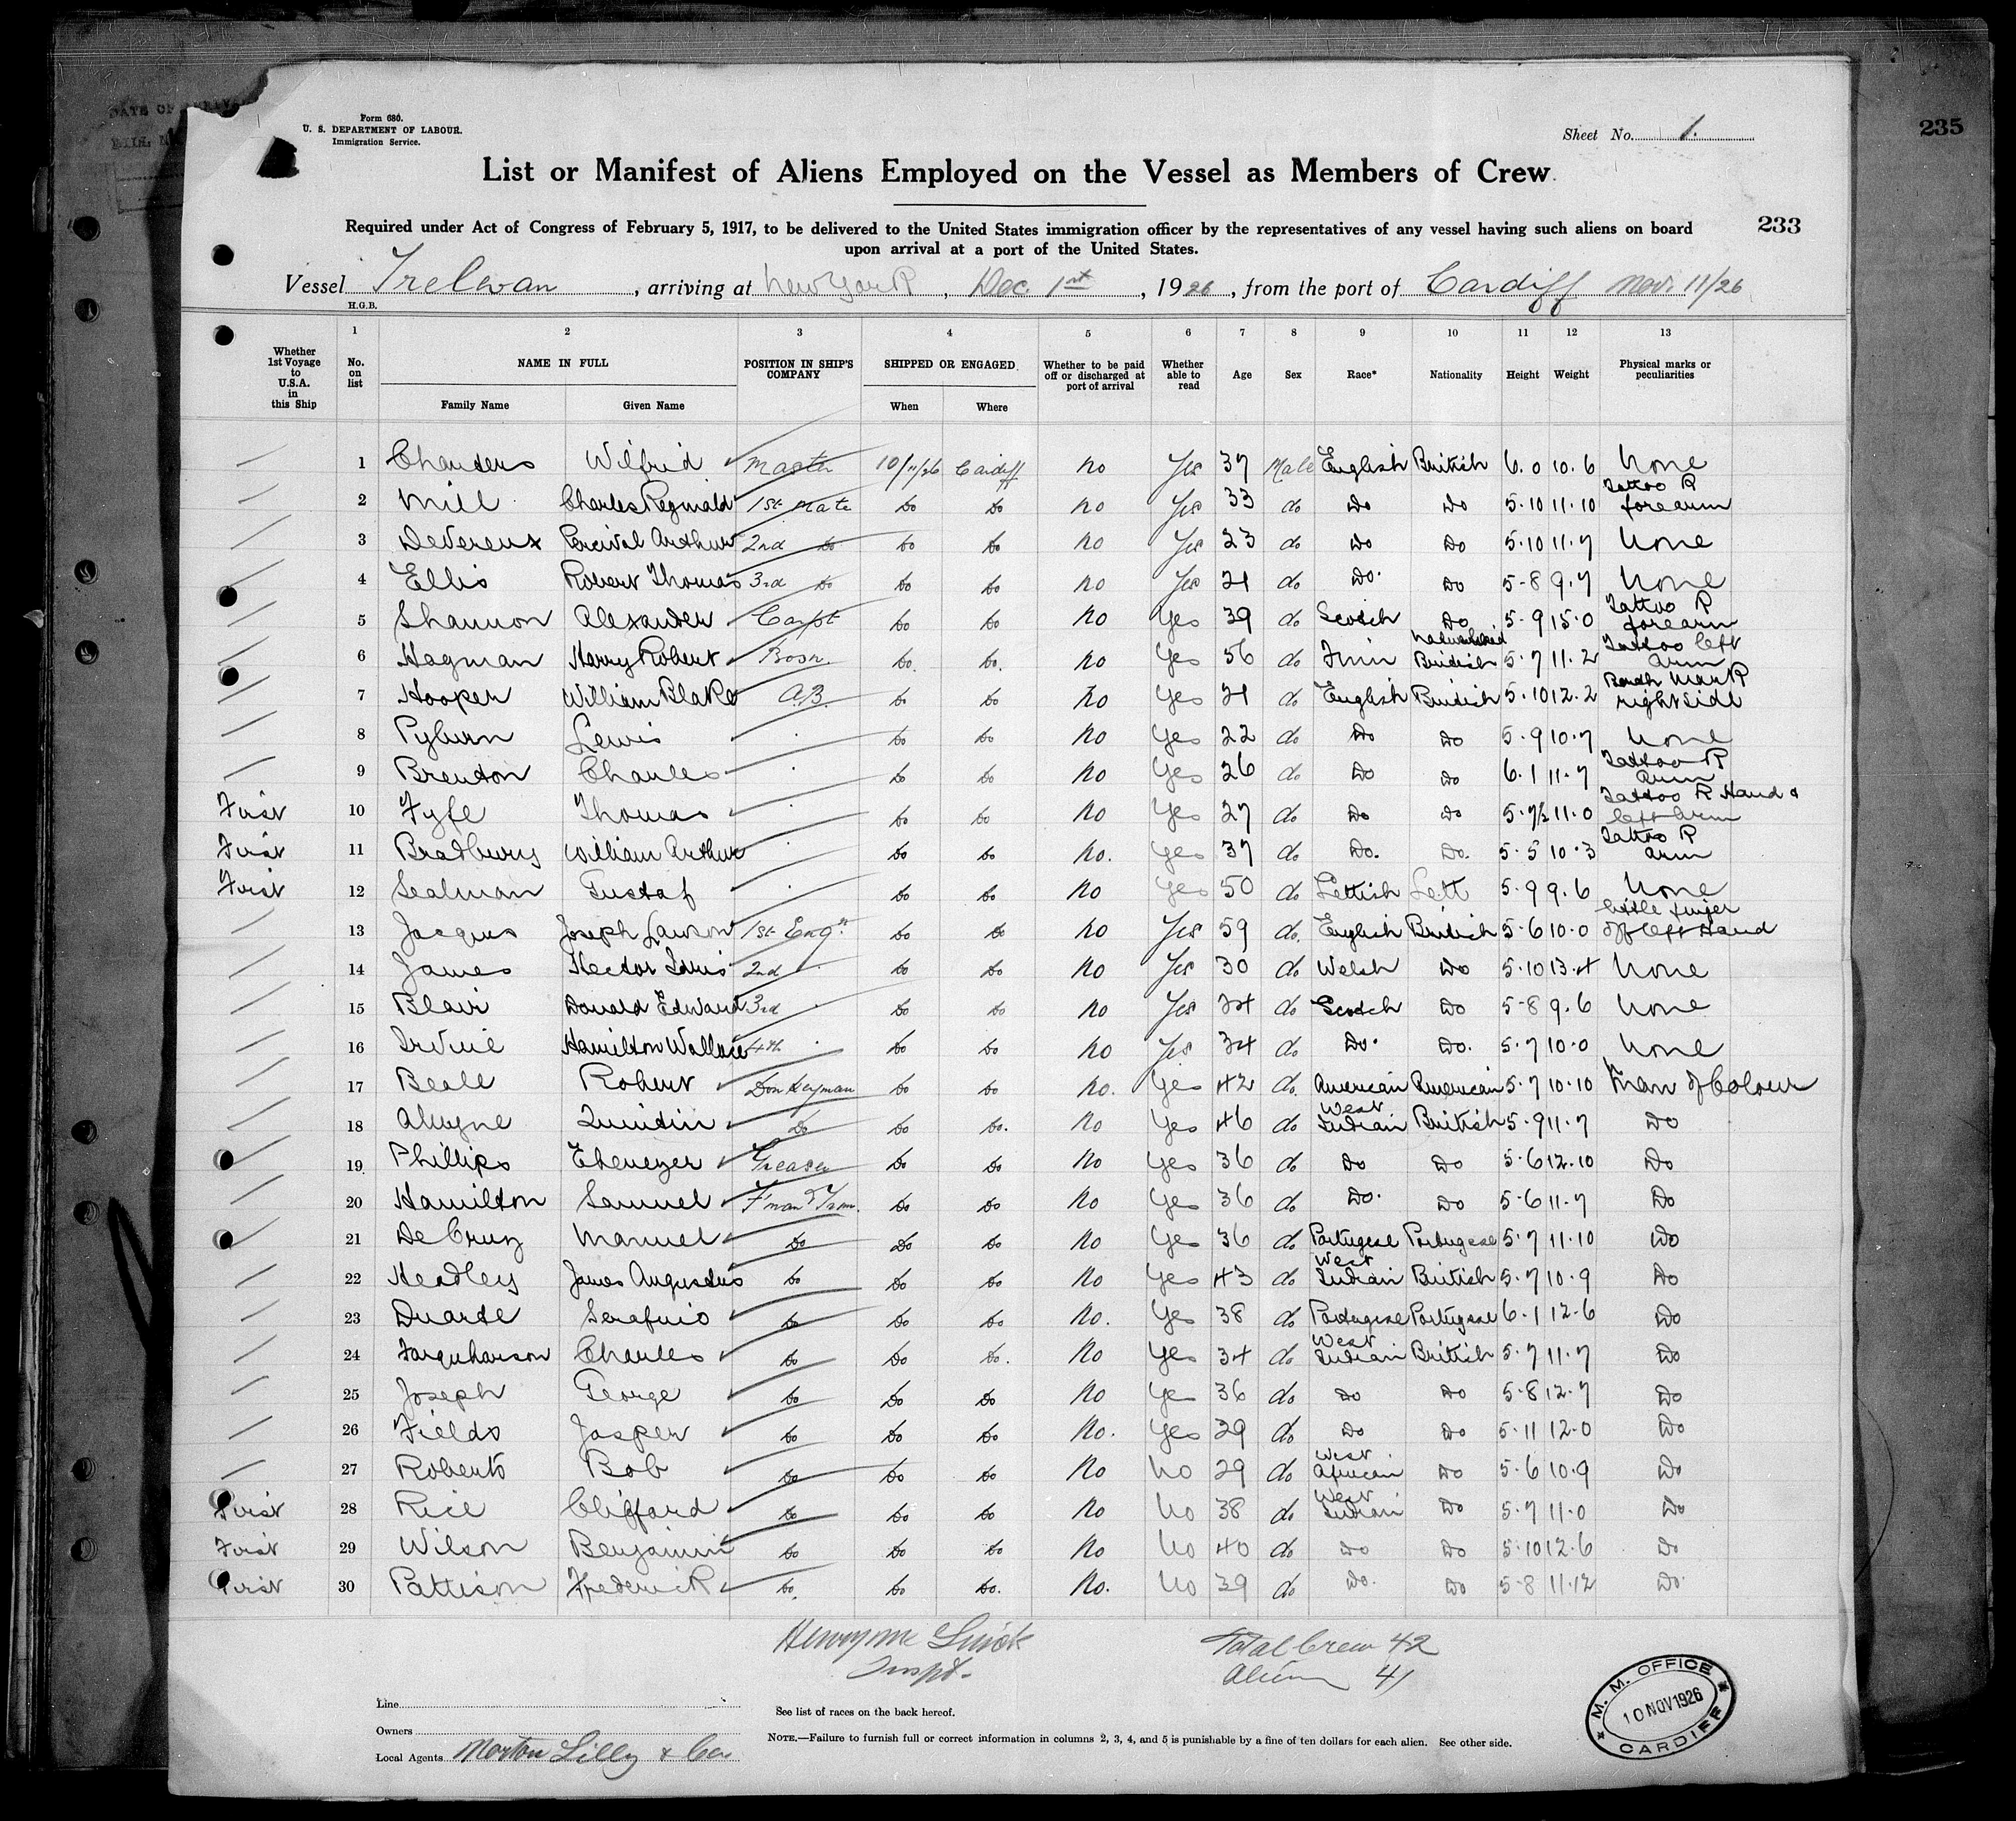 DATE OF
235
Form 680.
U. S. DEPARTMENT OF LABOUR.
Immigration Service.
Sheet No. 1.
List or Manifest of Aliens Employed on the Vessel as Members of Crew
Required under Act of Congress of February 5, 1917, to be delivered to the United States immigration officer by the representatives of any vessel having such aliens on board
upon arrival at a port of the United States.
233
Vessel Trelwan, arriving at New York, Dec. 1st, 1926, from the port of Cardiff Nov. 11/26
H.G.B.
1 2 3 4 5 6 7 8 9 10 11 12 13
Whether 1st Voyage to U.S.A. in this Ship No. on list NAME IN FULL POSITION IN SHIP'S COMPANY SHIPPED OR ENGAGED Whether to be paid off or discharged at port of arrival Whether able to read Age Sex Race* Nationality Height Weight Physical marks or peculiarities
Family Name Given Name When Where
/ 1 Wilfrid Master 10/11/26 Cardiff No Yes 37 Male English British 6.0 10.6 None
/ 2 Mill Charles Reginald 1st Mate Do Do No Yes 33 do Do Do 5.10 11.10 Tattoo R forearm
/ 3 Devereux Percival Arthur 2nd Do Do Do No Yes 23 do Do Do 5.10 11.7 None
/ 4 Ellis Robert Thomas 3rd Do Do Do No Yes 21 do Do. Do 5-8 9.7 None
/ 5 Shannon Alexander Carpt Do Do No Yes 39 do Scotch Do 5-9 15.0 Tattoo R forearm
/ 6 Hagman Harry Robert Bosn. Do. Do. No Yes 56 do Finn British 5.7 11.2 Tattoo left arm
/ 7 Hooper William Blake A.B. Do Do No Yes 21 do English British 5.10 12.2 Mark right side
/ 8 Pyburn Lewis Do Do No Yes 22 do Do Do 5.9 10.7 None
/ 9 Brenton Charles Do Do No Yes 26 do Do Do 6.1 11.7 Tattoo R arm
First 10 Fyfe Thomas Do Do No Yes 27 do Do Do 5.7½ 11.0 Tattoo R Hand & left arm
First 11 Bradbury William Arthur Do Do No. Yes 37 do Do. Do. 5.5 10.3 Tattoo R arm
First 12 Sealman Gustaf Do Do No Yes 50 do Lettish Lett 5.9 9.6 None
/ 13 Jacques Joseph Lawson 1st Engr. Do Do No Yes 59 do. English British 5.6 10.0 little finger off left Hand
/ 14 James Hector 2nd Do Do No Yes 30 do Welsh Do 5.10 13.4 None
/ 15 Blair Donald Edward 3rd Do Do No Yes 24 do Scotch Do 5-8 9.6 None
/ 16 Irvine Hamilton Wallace 4th Do Do No Yes 34 do Do. Do. 5.7 10.0 None
/ 17 Beale Robert Donkeyman Do Do No. Yes 42 do. American American 5.7 10.10 Man of Colour
/ 18 Alleyne Quintin Do Do Do. No Yes 46 do West Indian British 5.9 11.7 Do
/ 19 Phillips Ebenezer Greaser Do Do No Yes 36 do Do Do 5.6 12.10 Do
/ 20 Hamilton Samuel F'man & Trm. Do Do No Yes 36 do Do. Do 5.6 11.7 Do
/ 21 De Cruz Manuel Do Do Do No Yes 36 do Portugese Portugese 5.7 11.10 Do
/ 22 Headley James Augustus Do Do Do No Yes 43 do West Indian British 5.7 10.9 Do
/ 23 Duarte Serafinio Do Do Do No. Yes 38 do Portugese Portugese 6.1 12.6 Do
/ 24 Farquharson Charles Do Do Do. No Yes 34 do West Indian British 5.7 11.7 Do
/ 25 Joseph George Do Do Do No Yes 36 do Do Do 5.8 12.7 Do
/ 26 Fields Jasper Do Do Do No. Yes 29 do Do Do 5.11 12.0 Do
/ 27 Roberts Bob Do Do Do No No 29 do West African Do 5.6 10.9 Do
First 28 Rice Clifford Do Do Do No No 38 do West Indian Do 5.7 11.0 Do
First 29 Wilson Benjamin Do Do Do No No 40 do Do Do 5.10 12.6 Do
First 30 Pattison Frederick Do. Do Do. No. No 39 do Do. Do 5-8 11.12 Do.
Total Crew 42
Inspt.
Alien 41
Line
See list of races on the back hereof.
Owners
NOTE.—Failure to furnish full or correct information in columns 2, 3, 4, and 5 is punishable by a fine of ten dollars for each alien. See other side.
Local Agents Morton Lilly & Co.
M. M. OFFICE
10 NOV 1926
CARDIFF